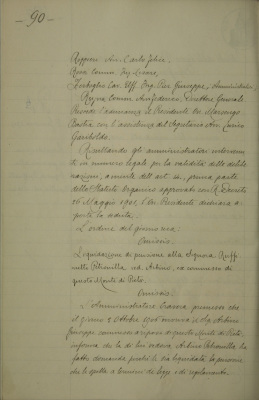 - 90 -
Ruggeri Avv. Carlo Felice
Rosa Comm. Ing.
Cav. Uff. Ing. Pier Giuseppe, Amministratori
Comm. Direttore Generale
Presiede l'adunanza il Presidente
Bastia con l'assistenza del Segretario Avv.
Garibaldo.
Risultando gli amministratori intervenu-
ti in numero legale per la validità delle delibe-
razioni, a mente dell'art. prima parte
dello Statuto Organico approvato con R. Decreto
26 Maggio 1901, l'On. Presidente dichiara a-
perta la seduta.
L'ordine del giorno reca:
Omissis.
Liquidazione di pensione alla Signora Ruffi-
Petronilla ved. Arbino, ex commesso di
questo Monte di Pietà.
Omissis.
L'Amministratore premesso che
il giorno 5 Ottobre 1906 moriva il Sig. Arbino
Giuseppe commesso a riposo di questo Monte di Pietà,
informa che la di lui vedova Arbino Petronilla ha
fatto domanda perché le sia liquidata la pensione
che le spetta a termini di legge e di regolamento.